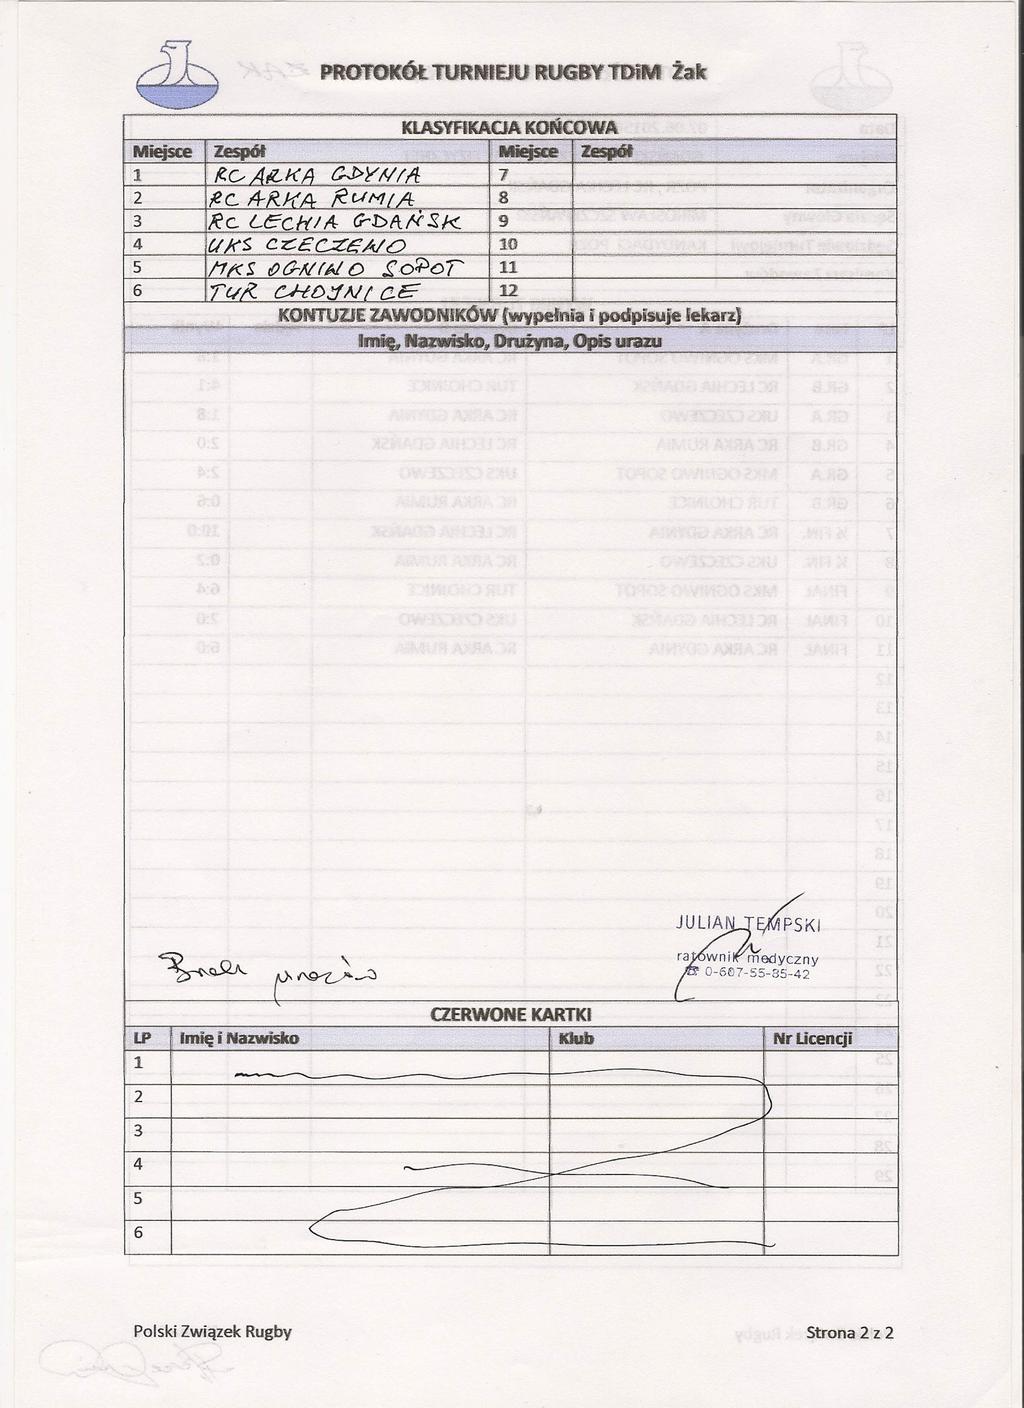 PROTOKÓŁ TURNIEJU RUGBY TDiM Żak
KLASYFIKACJA KOŃCOWA
Miejsce Zespół Miejsce Zespół
1 RC ARKA GDYNIA 7
2 RC ARKA RUMIA 8
3 RC LECHIA GDAŃSK 9
4 UKS CZECZEWO 10
5 MKS OGNIWO SOPOT 11
6 TUR CHOJNICE 12
KONTUZJE ZAWODNIKÓW (wypełnia i podpisuje lekarz)
Imię, Nazwisko, Drużyna, Opis urazu
JULIAN TEMPSKI
ratownik medyczny
☎ 0-607-55-35-42
Brak urazów
CZERWONE KARTKI
LP Imię i Nazwisko Klub Nr Licencji
1
2
3
4
5
6
Polski Związek Rugby Strona 2 z 2